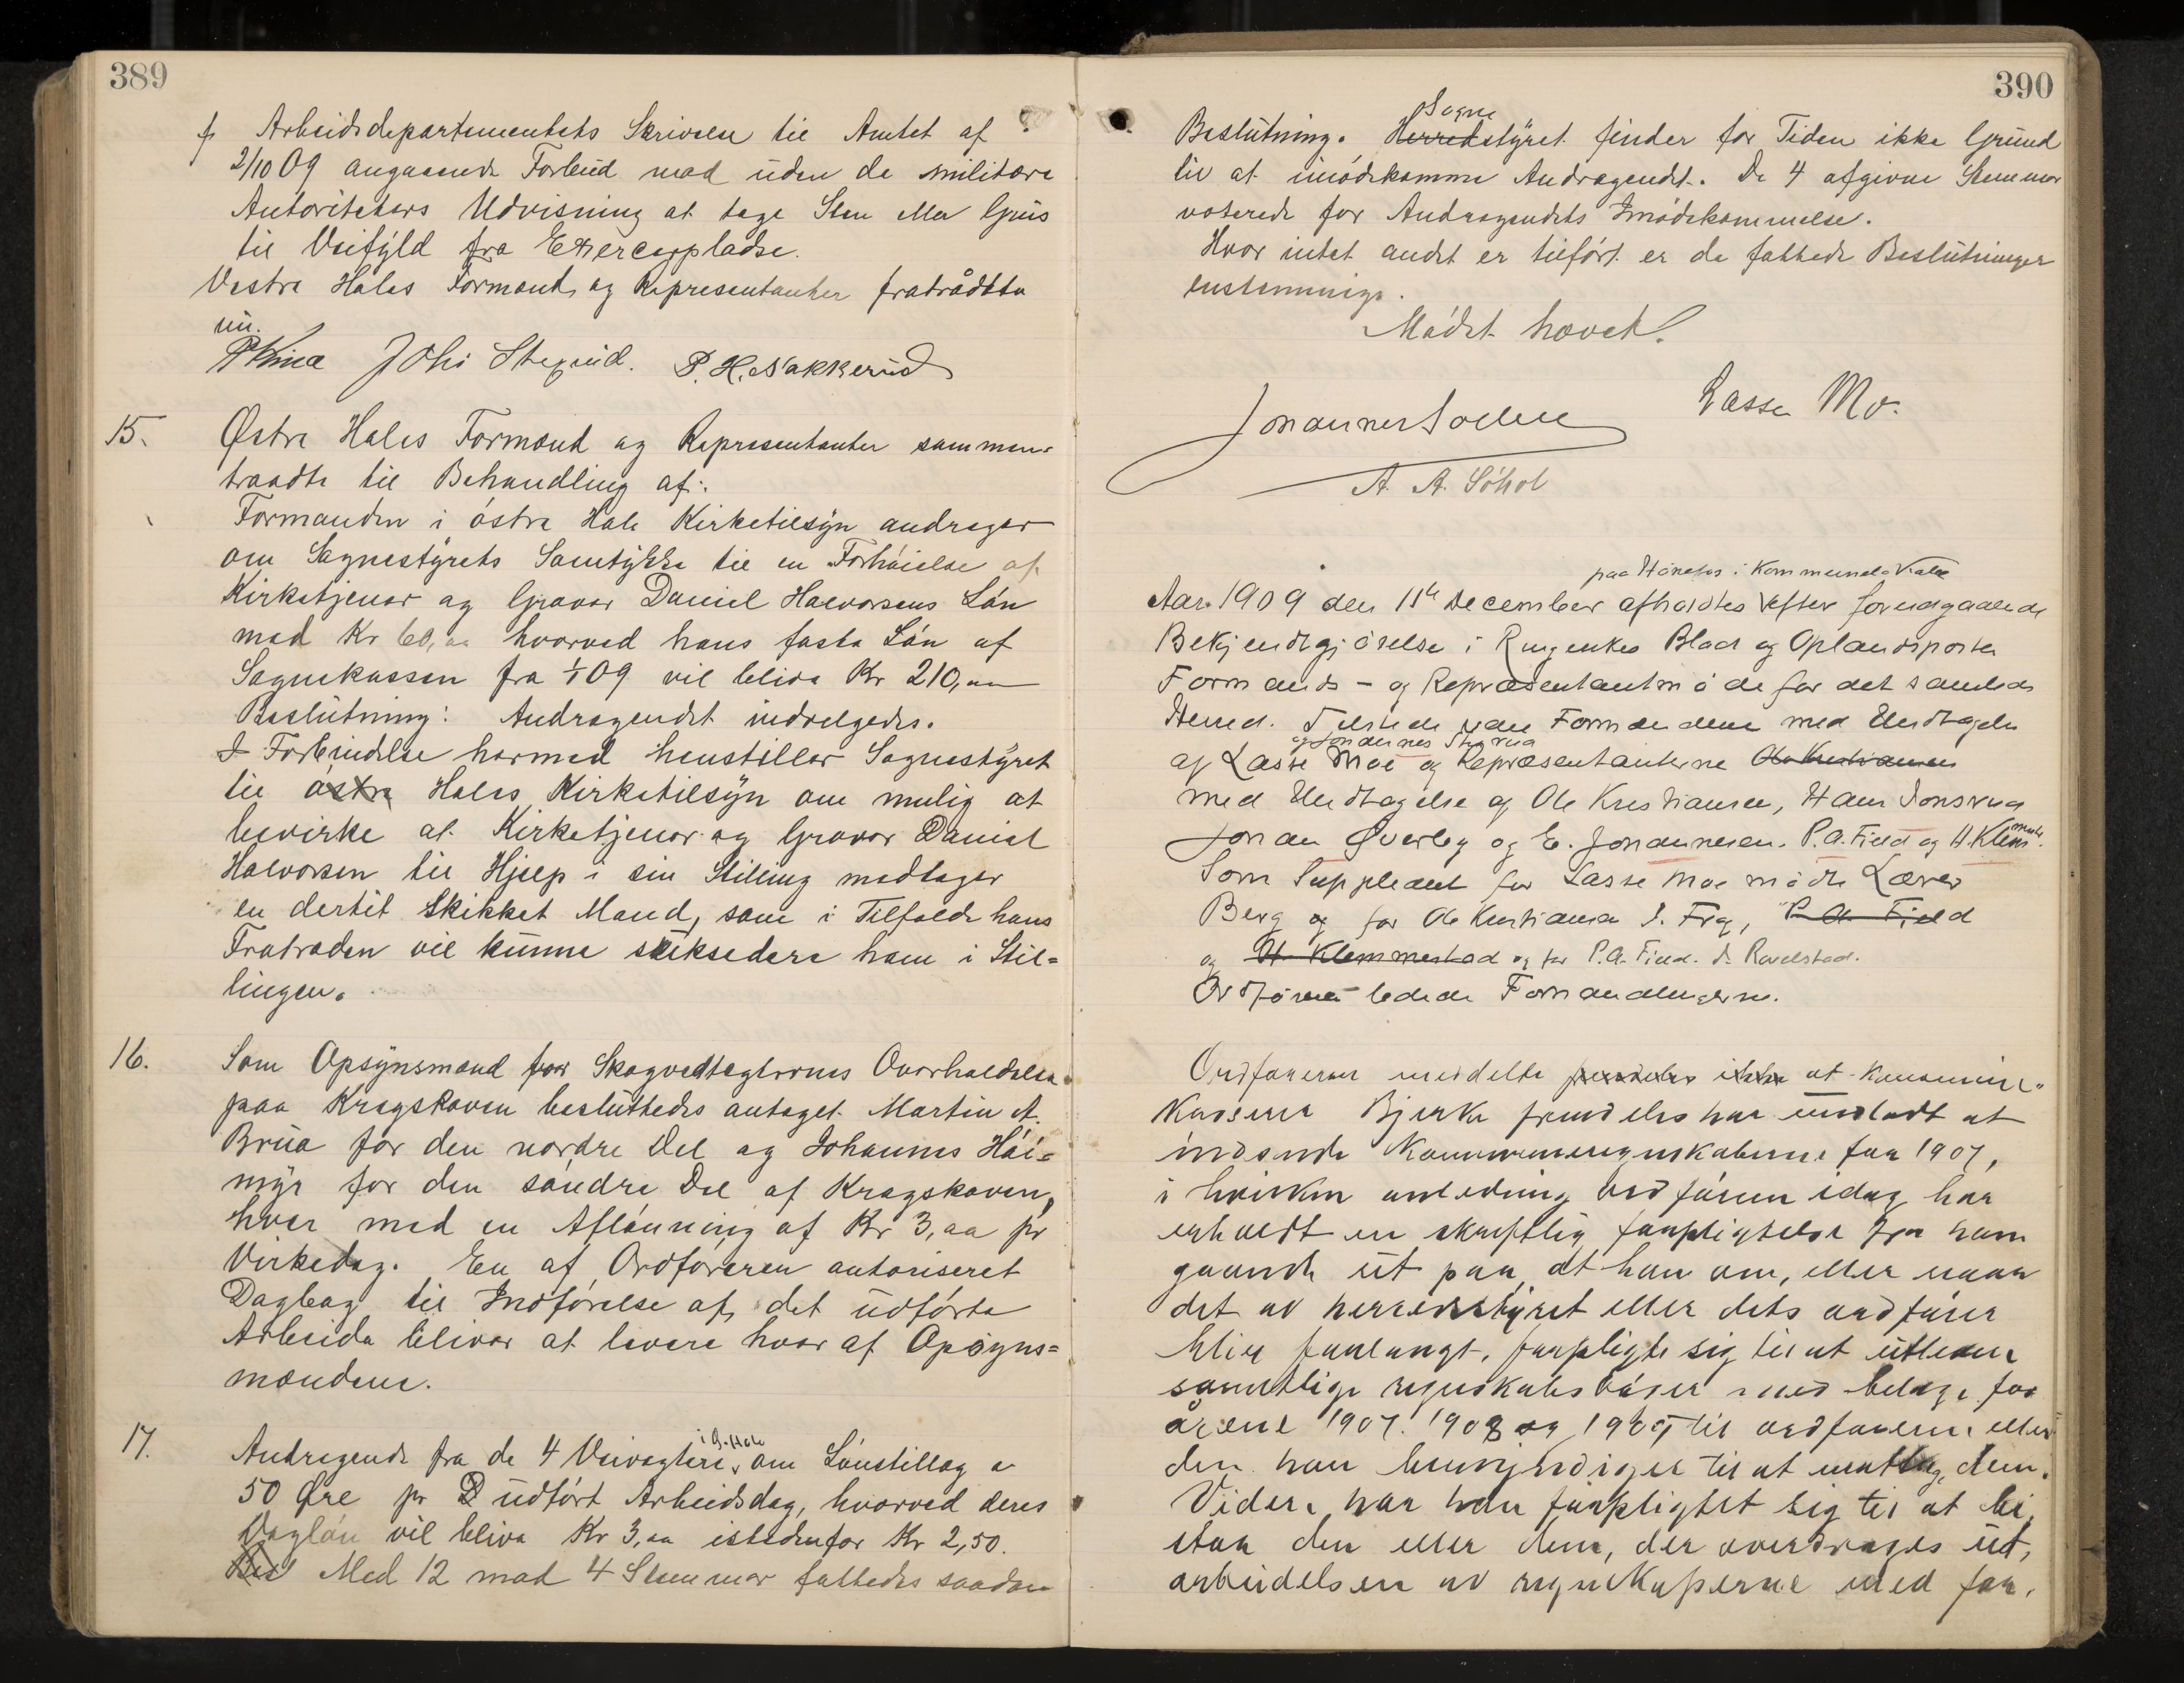 389
f Arbeidsdepartementets Skrivelse til Amtet af
2/10 09 angaaende Forbud mod uden de militære
Autoriteters Udvisning at tage Sten eller Grus
til Veifyld fra Exercerpladse.
Vestre Holes Formænd og Repræsentanter fratrådte
nu.
P. H. Nakkerud
15. Østre Holes Formænd og Repræsentanter sammen-
traadte til Behandling af:
Formanden i østre Hole Kirketilsyn andrager
om Sognestyrets Samtykke til en Forhøielse af
Kirketjener og Graver Daniel Halvorsens Løn
med Kr 60,00 hvorved hans faste Løn af
Sognekassen fra 1/1 09 vil blive Kr 210,00
Beslutning: Andragendet indvilgedes.
I Forbindelse hermed henstiller Sognestyret
til østre Holes Kirketilsyn om mulig at
bevirke at Kirketjener og Graver Daniel
Halvorsen til Hjælp i sin Stilling medtager
en dertil skikket Mand, som i Tilfælde hans
Fratræden vil kunne suksedere ham i Stil=
lingen.
16. Som Opsynsmænd for Skogvedtægternes Overholdelse
paa Krogskoven besluttedes antaget Martin A.
Brua for den nordre Del og Johannes Høi=
myr for den søndre Del af Krogskoven,
hver med en Aflønning af Kr 3,00 pr
Virkedag. En af Ordføreren autoriseret
Dagbog til Indførelse af det udførte
Arbeide bliver at levere hver af Opsyns=
mændene.
17. Andragende fra de 4 Veivogtere i Ø. Hole om Lønstillæg a
50 Øre pr D udført Arbeidsdag, hvorved deres
Dagløn vil blive Kr 3,00 istedenfor Kr 2,50.
Bes Med 12 mod 4 Stemmer fattedes saadan
390
Beslutning. Herredstyret Sogne finder for Tiden ikke Grund
til at imødekomme Andragendet. De 4 afgivne Stemmer
voterede for Andragendets Imødekommelse.
Hvor intet andet er tilført er de fattede Beslutninger
enstemmige.
Mødet hævet.
Lasse Mo.
A. A. Søhol
paa Hønefos i Kommunelokale
Aar 1909 den 11te December afholdtes efter foregaaende
Bekjendtgjørelse i Ringerikes Blad og Oplandsposten
Formands- og Repræsentantmøde for det samlede
Herred. Tilstede var Formændene med Undtagelse
af Lasse Moe og Johannes og Repræsentanterne Ole Kristiansen
med Undtagelse af Ole Kristiansen, Hans Jonsrud
Johan Øverby og E. Johannesen. P. A. Field og H. Klemmets.
Som Suppleant for Lasse Moe mødte Lærer
Berg og for Ole Kristiansen P. A. Field
og H. Klemmestad og for P. A. Field.
Ordføreren ledede Forhandlingerne.
Ordføreren meddelte fremdeles at Kommune-
kasserer Bjerke fremdeles har undladt at
indsende Kommuneregnskaberne for 1907,
i hvilken anledning ordføreren idag har
erholdt en skriftlig forpligtelse fra ham
gaaende ut paa, at han om, eller naar
det av herredsstyret eller dets ordfører
blir forlangt, forpligte sig til at utlevere
samtlige regnskabsbøger med belæg for
årene 1907. 1908 og 1909 til ordføreren eller
den han bemyndiger til at motta dem.
Videre har han forpligtet sig til at bi-
staa den eller dem, der overdrages ut-
arbeidelsen av regnskaperne med for-